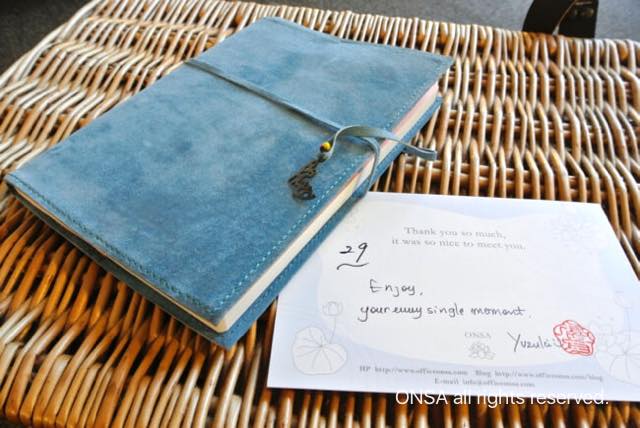 Thank you so much,
it was so nice to meet you.
29
Enjoy,
your every single moment.
ONSA
HP http://www.officeonsa.com Blog http://www.officeonsa.com/blog
E-mail info@officeonsa.com
ONSA all rights reserved.